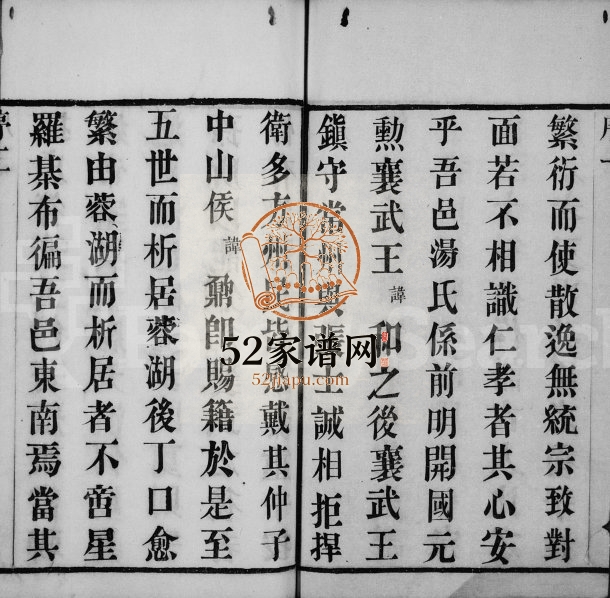 繁衍而使散逸無統宗致對
面若不相識仁孝者其心安
乎吾邑湯氏係前明開國元
勳襄武王諱和之後襄武王
鎮守常州與張士誠相拒捍
衛多方民皆戴其仲子
中山侯諱鼐卽賜籍於是至
五世而析居蓉湖後丁口愈
繁由蓉湖而析居者不啻星
羅棊布徧吾邑東南焉當其
52家谱网
52jiapu.com